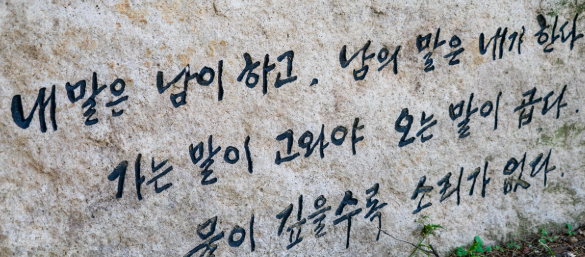 내 말은 남이 하고, 남의 말은 내가 한다
가는 말이 고와야 오는 말이 곱다.
물이 깊을수록 소리가 없다.